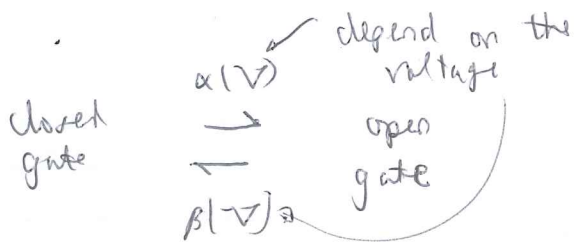 depend on the
voltage
α(V)
closed ⇀ open
gate ↽ gate
β(V)